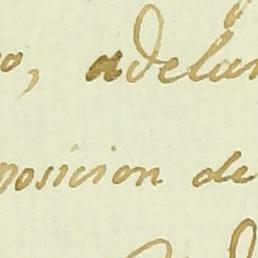 o, adelan
posicion de